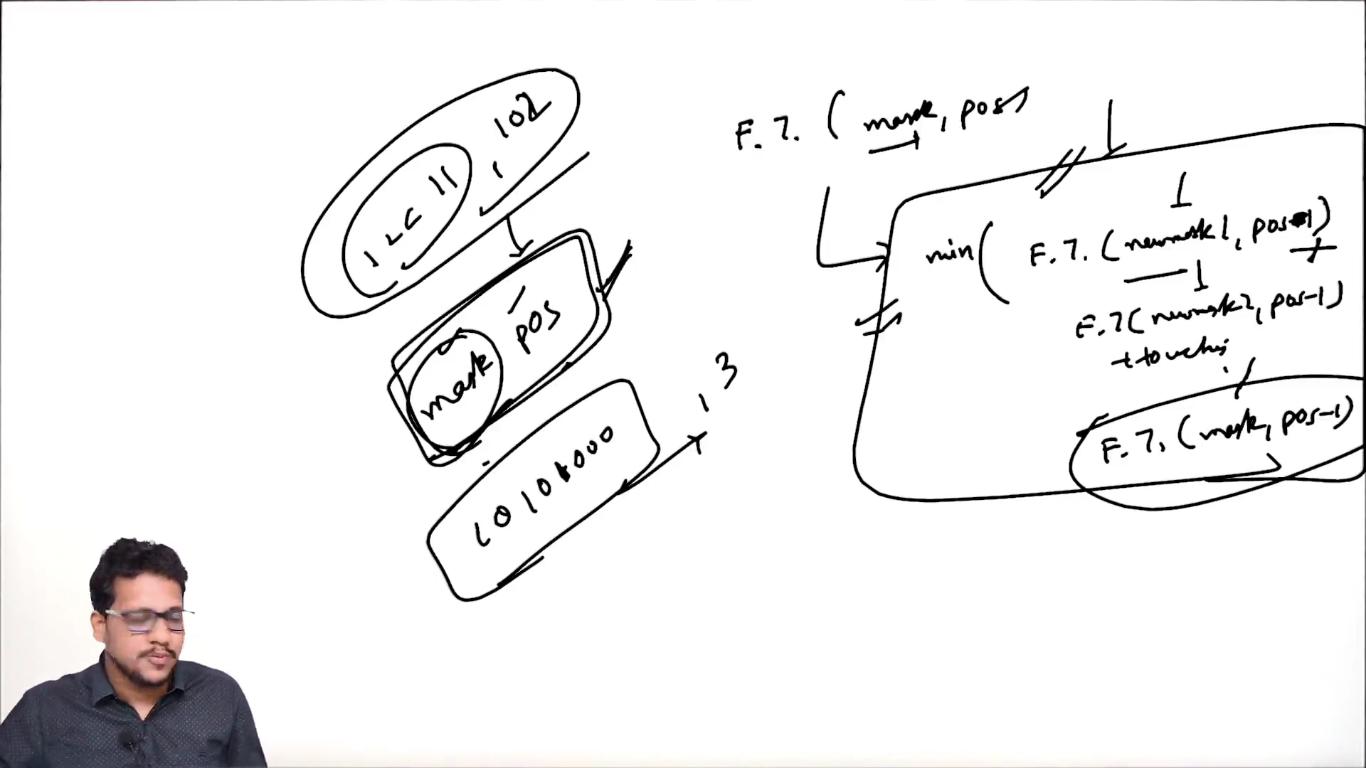 102
mask pos
10101000
, 3
F. T. ( mask, pos)
min ( F. T. ( newmask1, pos-1)
F. T ( newmask2, pos-1)
+ touching
F. T. ( mask, pos-1)